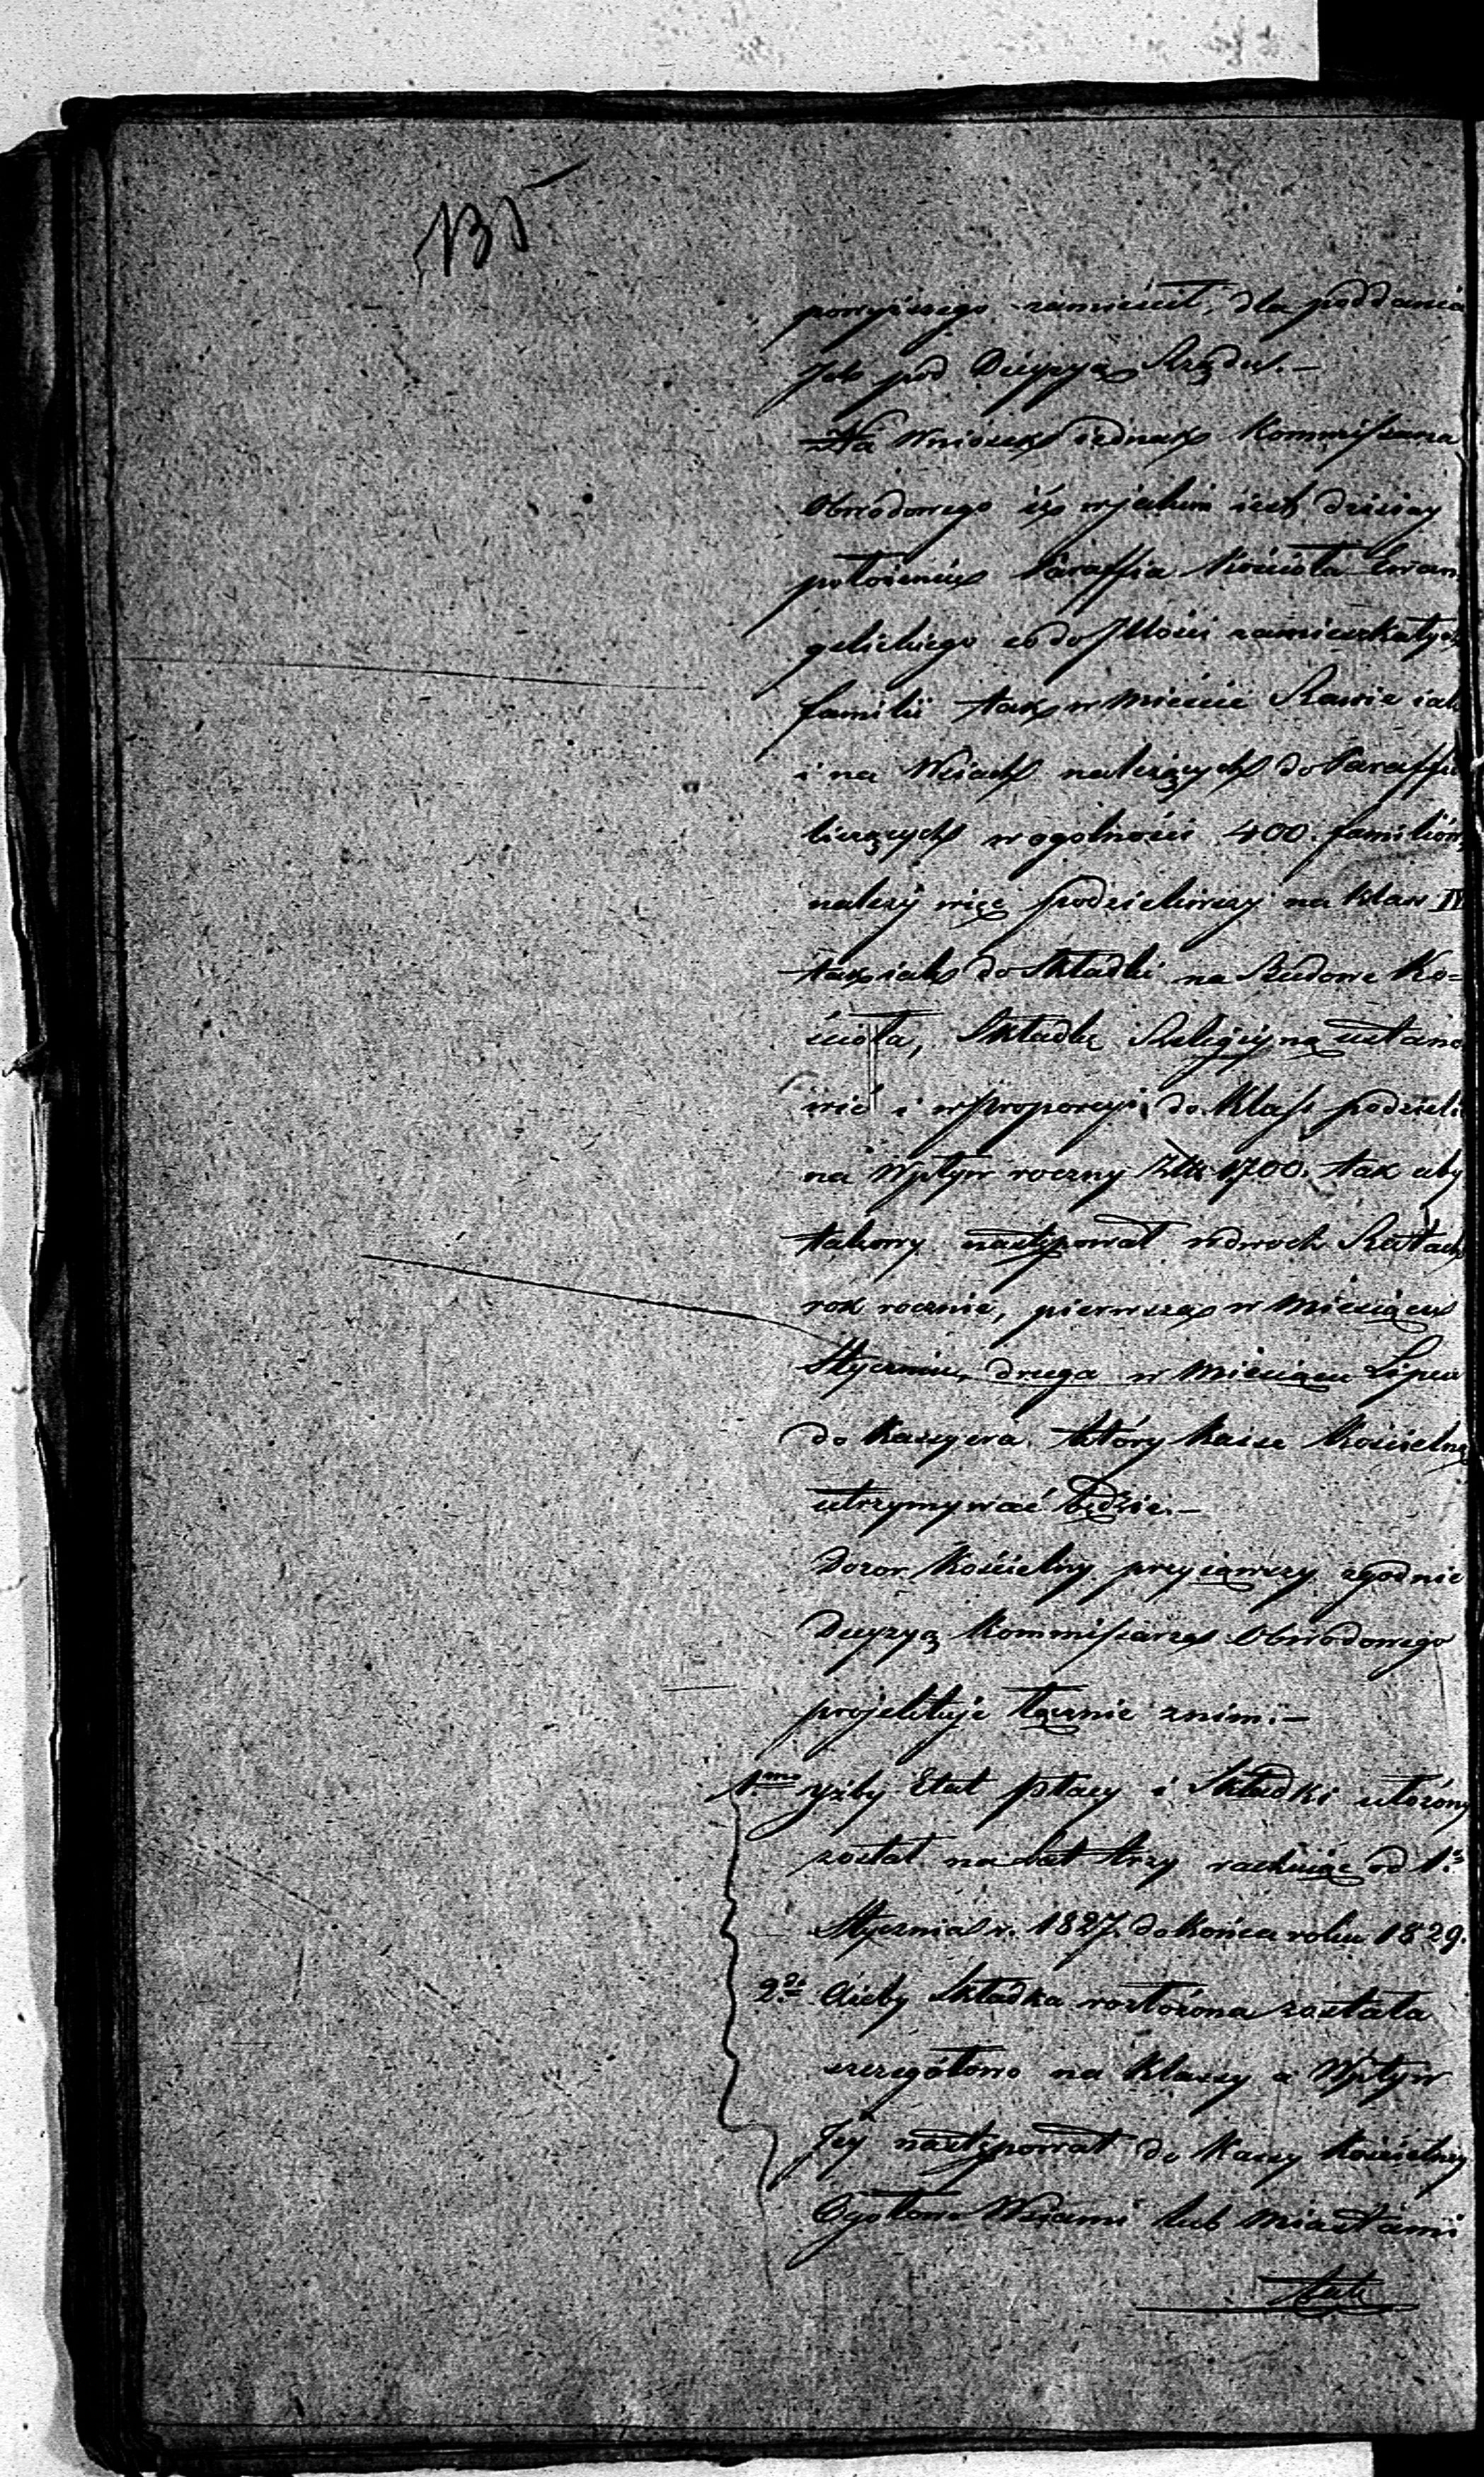 135
powyższego zamieścił, dla poddania
Ich pod Decyzyą Rządu. —
Na Wniosek iednak Kommissarza
Obwodowego iż w jakim iest dzisiay
położeniu Paraffia Kościoła Ewan
gelickiego co do Ilości zamieszkałych
familii tak w Mieście Rawie iak
i na Wsiach należących do Paraffii
liczących w ogólności 400. familiów,
należy więc podzieliwszy na Klass IV
tak iak do Składki na Budowę Ko=
ścioła, Składkę Religijną ustano
wić i w proporcyi do Klass podzielić
na Wpływ roczny Złtt 1700. tak aby
takowy następował w dwóch Ratach
rok rocznie, pierwsza w Miesiącu
Styczniu, druga w Miesiącu Lipcu
do Kassyera który Kasse Kościelną
utrzymywać będzie. —
Dozor Kościelny przyiąwszy zgodnie
Decyzyą Kommissarza Obwodowego
projektuje łącznie z nim: —
1.mo yżby Etat płacy i Składki ułożony
został na lat trzy rachuiąc od 1.
Stycznia r. 1827. do końca roku 1829.
2.do Ażeby Składka rozłożona została
szczegółowo na Klassy a Wpływ
Jey następował do Kassy Kościelney
Ogołowo Wsiami lub Miastami